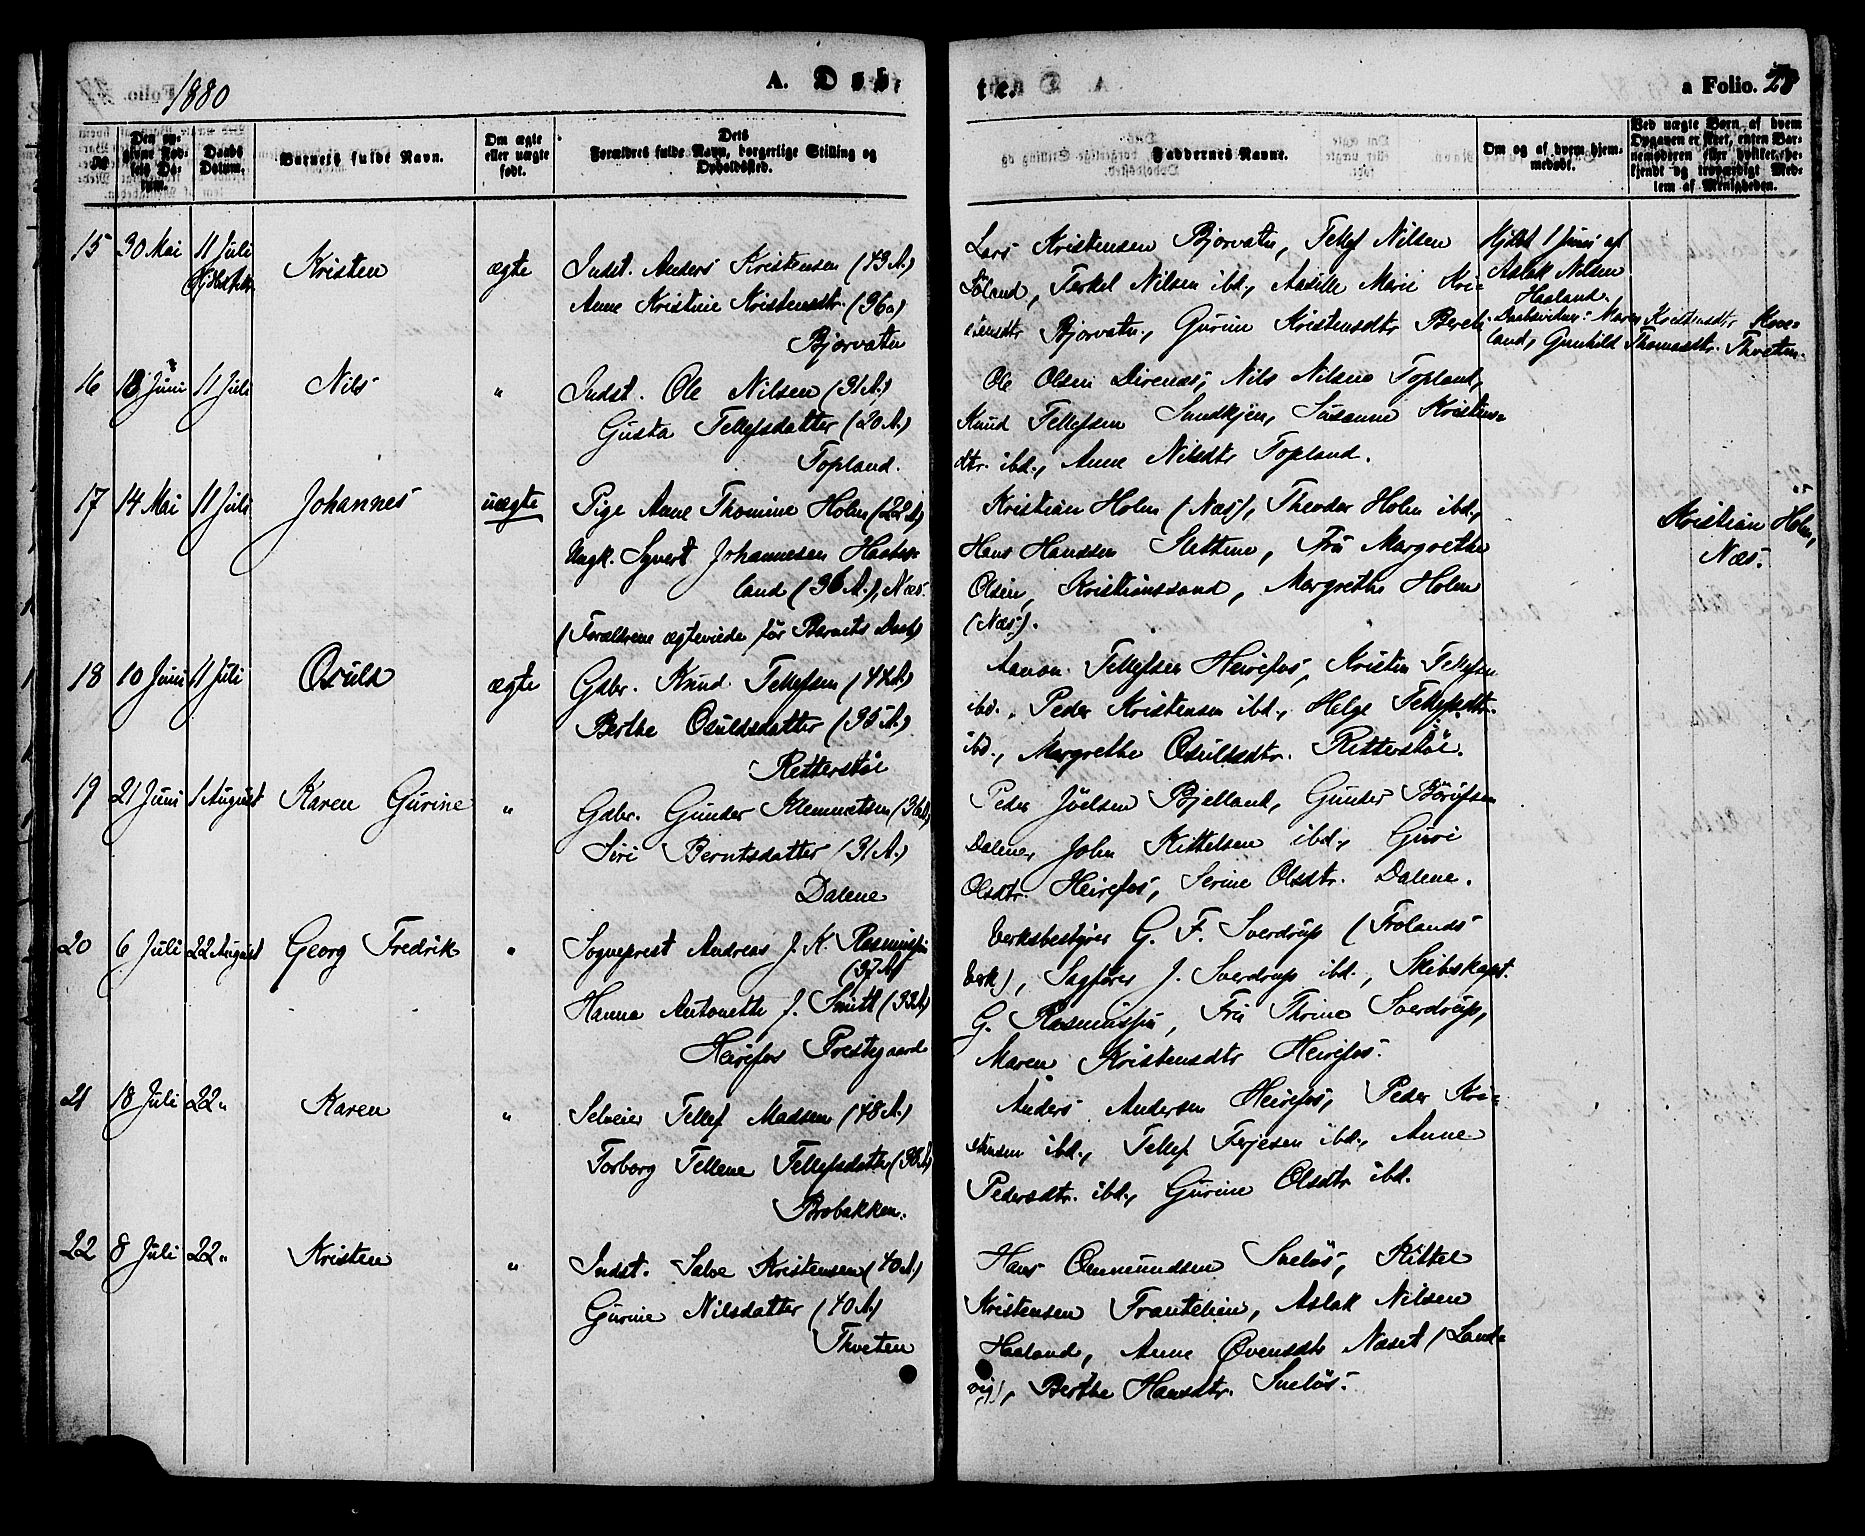 1880
A. Døb-
te.
a Folio. 28
No
Den op-
givne Fød-
sels Da-
tum.
Daabs
Datum.
Barnets fulde Navn.
Om ægte
eller uægte
født.
Dets
Forældres fulde Navn, borgerlige Stilling og
Opholdssted.
Faddernes Navne.
Om og af hvem hjem-
medøbt.
Ved uægte Børn af hvem
Opgaven er skeet, enten Bar-
nemoderen eller hvilket be-
kjendt og troværdigt Med-
lem af Menigheden.
15 30 Mai 11 Juli Kristen ægte Indst. Anders Kristensen (43 A.)
Anne Kristine Kristensdtr. (36 a)
Bjorvatn
Lars Kristensen Bjorvatn, Tellef Nilsen
Søland, Terkel Nilsen ibd., Marie Kri-
stensdtr Bjorvatn, Gurine Kristensdtr
Hjdbt 1 Juni af
Aslak Nilsen
Haaland.
Daabsvidner: Maren Kristensdtr
land, Gunhild Thomasdtr. Thveten.
16 Juni 11 Juli Nils " Indst. Ole Nilsen (31 A.)
Gusta Tellefsdatter (20 A.)
Topland.
Ole Olsen Direnæs, Nils Nilsen Topland,
Knud Tellefsen Sundkjen, Susanne Kristens-
dtr. ibd., Anne Nilsdtr Topland.
17 14 Mai 11 Juli Johannes uægte Pige Anne Thomine Holm (22 A.)
Ungk. Syvert Johannesen
land (36 A.), Næs.
(Forældrene ægteviede før Barnets Daab)
Kristian Holm (Næs), Theodor Holm ibd.,
Hans Hanssen Slettene, Fru Margrethe
Olsen, Kristianssand, Margrethe Holm
(Næs).
Kristian Holm,
Næs.
18 10 Juni 11 Juli Osuld ægte Gdbr. Knud Tellefsen (44 A.)
Berthe Osuldsdatter (35 A.)
Retterstøl
Aanon Tellefsen Heirefos, Kristen Tellefsen
ibd., Peder Kristensen ibd., Helge Tellefsdtr.
ibd., Margrethe Osuldsdtr. Retterstøl.
19 21 Juni 1 August Karen Gurine " Gdbr. Gunder Klemmetsen (36 A.)
Siri Berntsdatter (31 A.)
Dalene
Peder Joelsen Bjelland, Gunder Børufsen
Dalene, John Kittelsen ibd., Guri
Olsdtr. Heirefos, Serine Olsdtr. Dalene.
20 6 Juli 22 August Georg Fredrik " Sogneprest Andreas J. K. Rasmussen
(37 A)
Hanna Antonette J. Smitt (33 A)
Heirefos Prestegaard
Verksbestyrer G. F. Sverdrup (Frolands
Verk), Sagfører J. Sverdrup ibd., Skibskapt.
G. Rasmussen, Fru Thrine Sverdrup,
Maren Kristensdtr Heirefos.
21 18 Juli 22 " Karen " Selveier Tellef Madsen (48 A.)
Torborg Tellene Tellefsdatter (38 A)
Brobakken.
Anders Andersen Heirefos, Peder Kri-
stensen ibd., Tellef Terjesen ibd., Anne
Pedersdtr. ibd., Gurine Olsdtr ibd.
22 8 Juli 22 " Kristen " Indst. Salve Kristensen (40 A.)
Gurine Nilsdatter (40 A.)
Thveten
Hans Ommundsen Sneløs, Kittel
Kristensen Trantelien, Aslak Nilsen
Haaland, Anne Øvensdtr Næset (Land-
vig), Berthe Hansdtr. Sneløs.